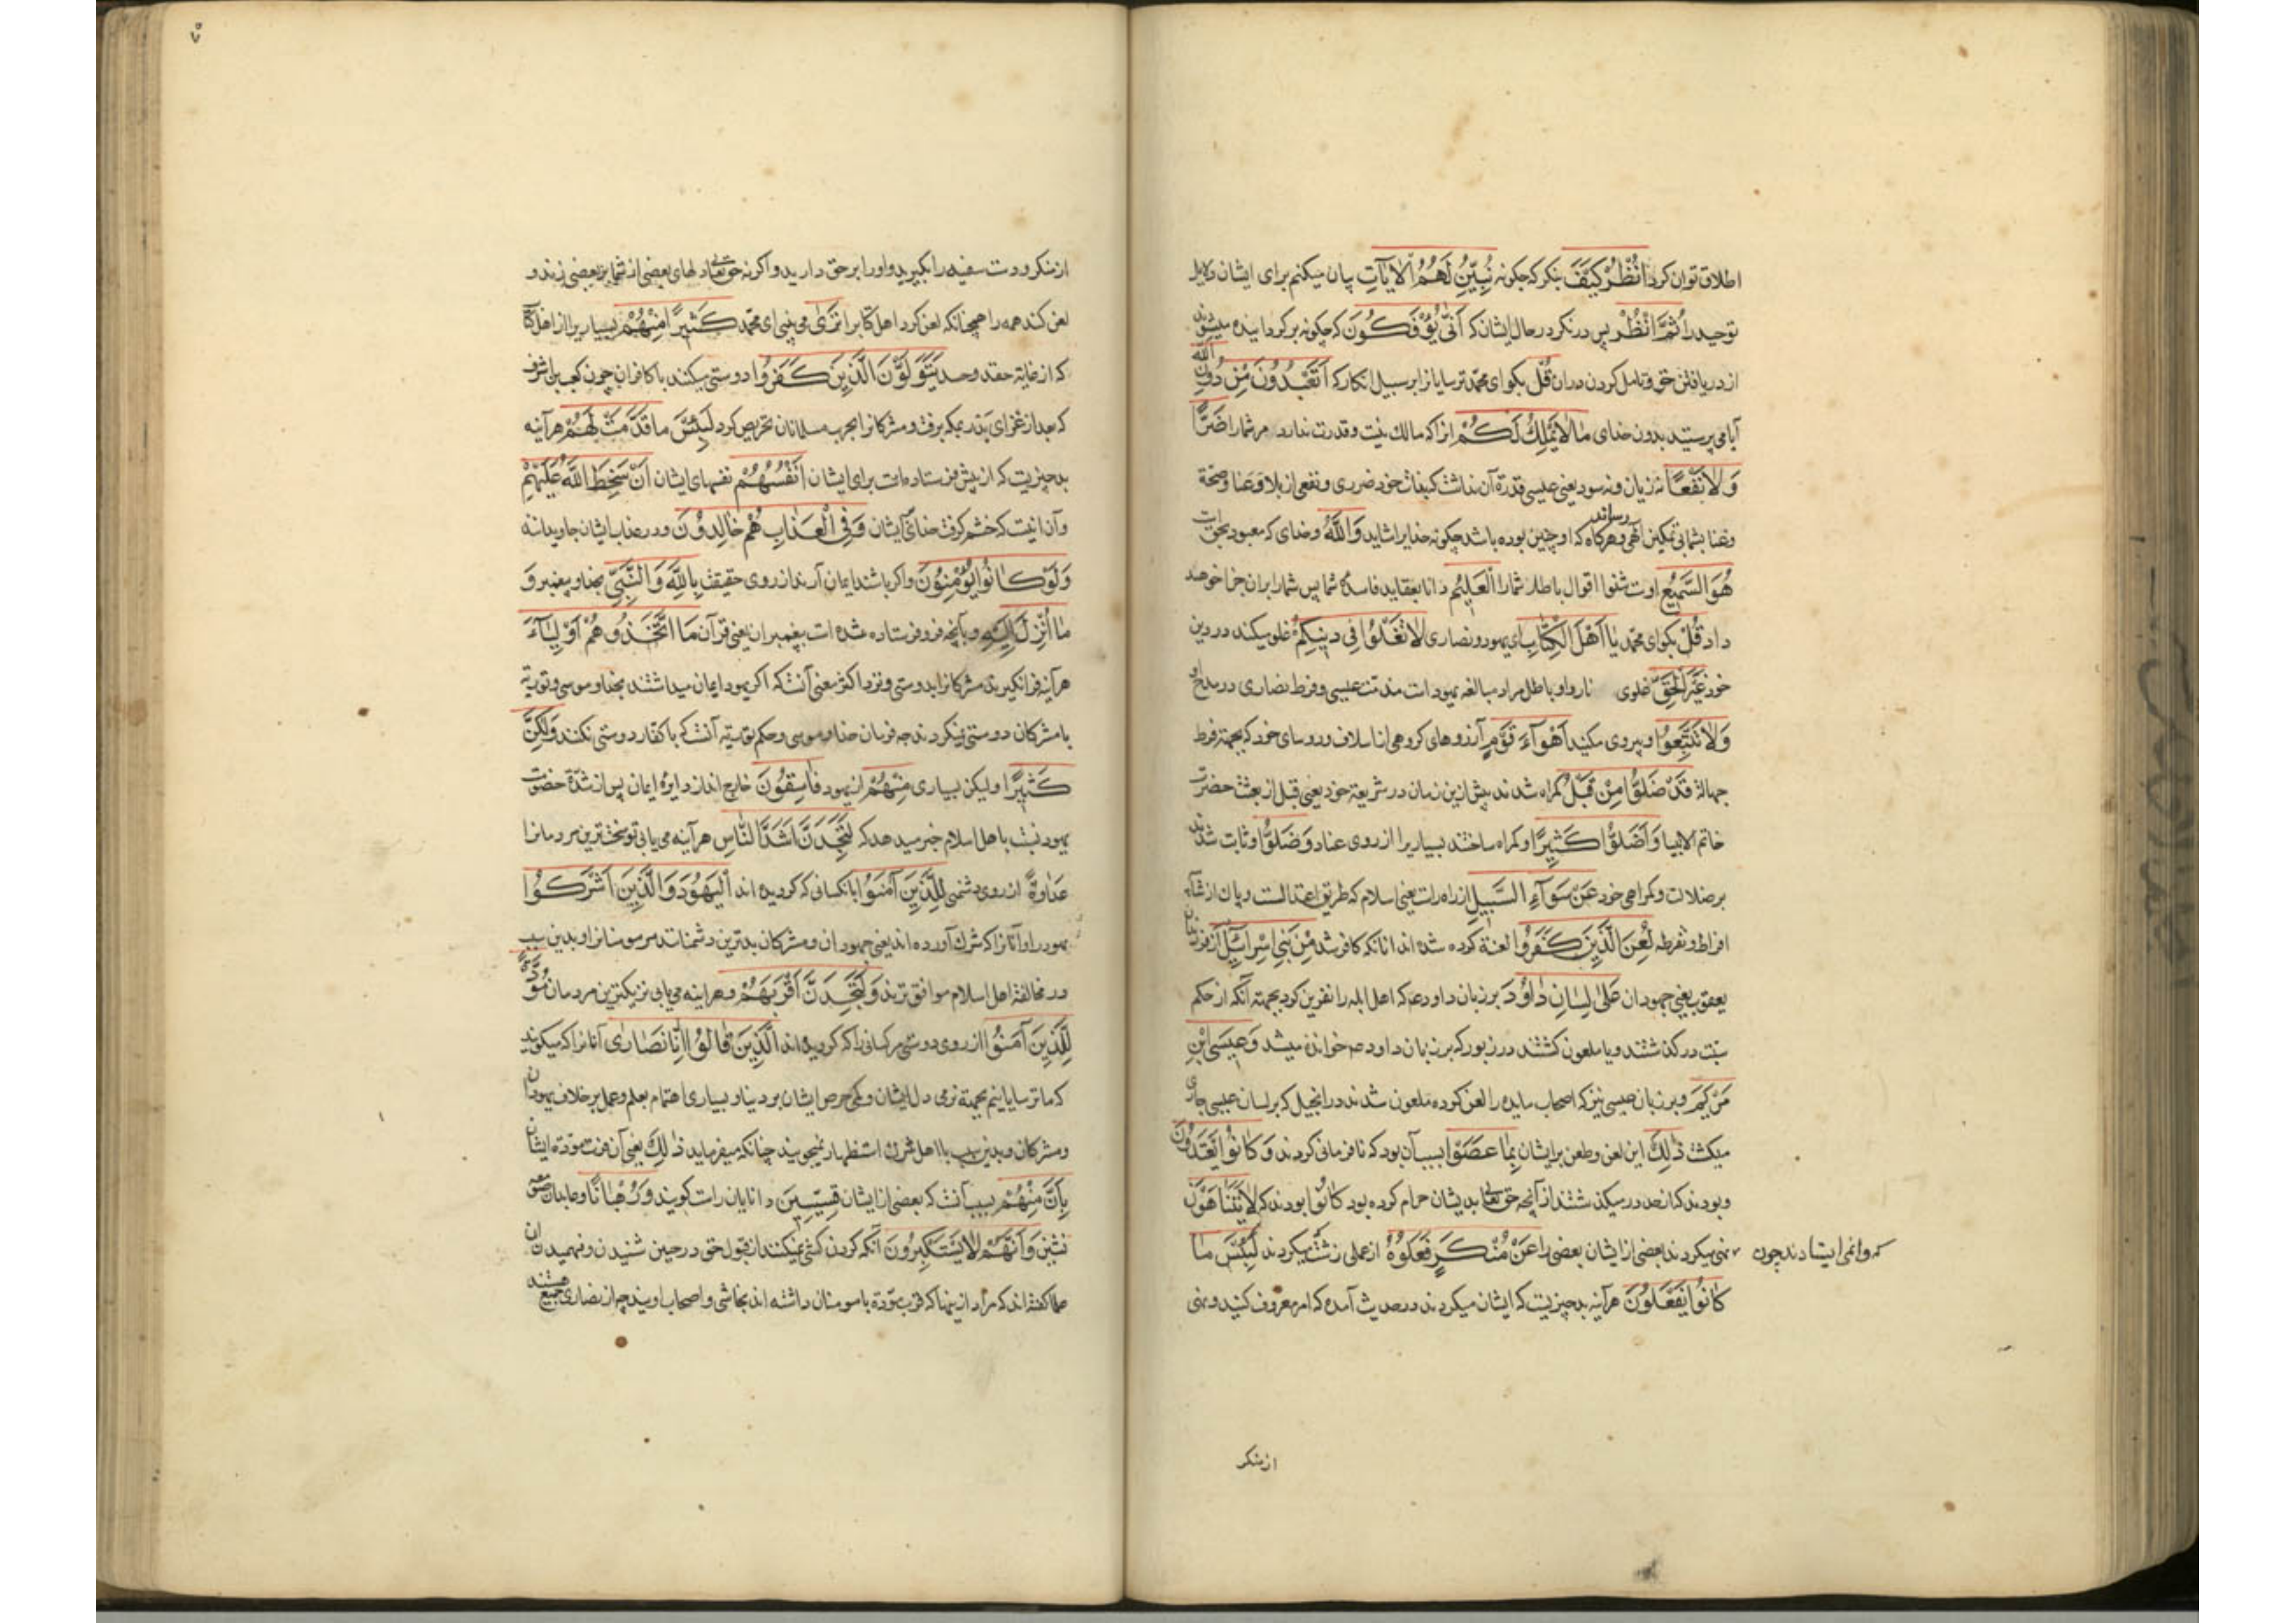 اطلاق توان کرد انْظُرْ کَیْفَ بنکر که چکونه نُبَیِّنُ لَهُمُ الْاٰیٰاتِ بیان میکنم برای ایشان دلایل
توحید را ثُمَّ انْظُرْ پس در نکر در حال ایشان که اَنّٰی یُؤْفَکُونَ که چکونه برکردانیده میشوند
از دریافتن حق و تامل کردن در ان قُلْ بکو ای محمد ترسایانرا بر سبیل انکار که اَتَعْبُدُونَ مِنْ دُونِ اللّٰه
آیا می پرستید بدون خدای مٰا لٰا یَمْلِکُ لَکُمْ انرا که مالک نیست و قدرت ندارد مر شما را ضَرًّا
وَلٰا نَفْعًا نه زیان و نه سود یعنی عیسی قدرة آن نداشت که بذات خود ضرری و نفعی از بلا و عنا و صحة
و غنا بشما بی تمکین الهی رساند و هرکاه که او چنین بوده باشد چکونه خدایرا شاید وَاللّٰهُ و خدای که معبود بحق است
هُوَ السَّمیعُ اوست شنوا اقوال باطل شما را الْعَلیمُ دانا بعقاید فاسدهٔ شما پس شما را بران جزا خواهد
داد قُلْ بکو ای محمد یٰا اَهْلَ الْکِتٰابِ ای یهود و نصاری لٰا تَغْلُوا فی دینِکُمْ غلو میکنید در دین
خود غَیْرَ الْحَقِّ غلوی ناروا و باطل مراد مبالغه یهود است در مذمت عیسی و فرط نصاری در مدح او
وَلٰا تَتَّبِعُوا و پیروی مکنید اَهْوٰآءَ قَوْمٍ آرزوهای کروهی از اسلاف و روسای خود که بجهة فرط
جهالة قَدْ ضَلُّوا مِنْ قَبْلُ کمراه شدند پیش ازین زمان در شریعة خود یعنی قبل از بعثت حضرت
خاتم الانبیا وَاَضَلُّوا کَثیرًا و کمراه ساختند بسیاریرا از روی عناد وَضَلُّوا و ثابت شدند
بر ضلالت و کمراهی خود عَنْ سَوٰآءِ السَّبیلِ از راه راست یعنی اسلام که طریق اعتدالست و میان از شائبه
افراط و تفریط لُعِنَ الَّذینَ کَفَرُوا لعنة کرده شده اند انانکه کافر شدند مِنْ بَنی اِسْرٰآئیلَ از فرزندان
یعقوب یعنی جهودان عَلیٰ لِسٰانِ دٰاوُدَ بر زبان داود ع که اهل ایله را نفرین کرد بجهة آنکه از حکم
سبت درکذشتند و یا ملعون کشتند در زبور که بر زبان داود ع خوانده میشد وَعیسَی ابْنِ
مَرْیَمَ و بر زبان عیسی نیز که اصحاب مایده را لعن کرده ملعون شدند در انجیل که بر لسان عیسی جاری
میکشت ذٰلِکَ این لعن و طعن بر ایشان بِمٰا عَصَوْا بسبب آن بود که نافرمانی کردند وَکٰانُوا یَعْتَدُونَ
و بودند که از حد در میکذشتند از آنچه حق تعالی بدیشان حرام کرده بود کٰانُوا بودند که لٰا یَتَنٰاهَوْنَ
نهی نمیکردند بعضی از ایشان بعضی را عَنْ مُنْکَرٍ فَعَلُوهُ از عملی زشت میکردند لَبِئْسَ مٰا
که وا نمی ایستادند چون
کٰانُوا یَفْعَلُونَ هر آینه بد چیزیست که ایشان میکردند در حدیث آمده که امر معروف کنید و نهی
از منکر
از منکر و دست سفیه را بکیرید و او را بر حق دارید و اکرنه حق تعالی دلهای بعضی از شما بر بعضی زند و
لعن کند همه را همچنانکه لعن کرد اهل کتابرا تَرٰی می بینی ای محمد کَثیرًا مِنْهُمْ بسیاریرا از اهل کتاب
که از غایة حقد و حسد یَتَوَلَّوْنَ الَّذینَ کَفَرُوا دوستی میکنند با کافران چون کعب بن اشرف
که بعد از غزای بدر بمکه برفت و مشرکانرا بحرب مسلمانان تحریص کرد لَبِئْسَ مٰا قَدَّمَتْ لَهُمْ هر آینه
بد چیزیست که از پیش فرستاده است برای ایشان اَنْفُسُهُمْ نفسهای ایشان اَنْ سَخِطَ اللّٰهُ عَلَیْهِمْ
و آن انیست که خشم کرفت خدای بر ایشان وَفِی الْعَذٰابِ هُمْ خٰالِدُونَ و در عذاب ایشان جاویدانند
وَلَوْ کٰانُوا یُؤْمِنُونَ و اکر باشند ایمان آرند از روی حقیقت بِاللّٰهِ وَالنَّبِیِّ بخدا و پیغمبر وَ
مٰا اُنْزِلَ اِلَیْهِ و بآنچه فرو فرستاده شده است بپیغمبر ان یعنی قرآن مَا اتَّخَذُوهُمْ اَوْلِیٰآءَ
هر آینه فرا نکیرند مشرکانرا بدوستی و نزد اکثر معنی آنست که اکر یهود ایمان میداشتند بخدا و موسی و توریة
با مشرکان دوستی نمیکردند چه فرمان خدا و موسی و حکم توریة آنست که با کفار دوستی نکنند وَلٰکِنَّ
کَثیرًا و لیکن بسیاری مِنْهُمْ از یهود فٰاسِقُونَ خارج اند از دایرهٔ ایمان پس از شدة خصومت
یهود نسبت باهل اسلام خبر میدهد که لَتَجِدَنَّ اَشَدَّ النّٰاسِ هر آینه می یابی تو سخت ترین مردمانرا
عَدٰاوَةً از روی دشمنی لِلَّذینَ آمَنُوا با نکسانی که کرویده اند الْیَهُودَ وَالَّذینَ اَشْرَکُوا
یهود را و آنانرا که شرک آورده اند یعنی جهودان و مشرکان بدترین دشمنانند مر مومنانرا و بدین سبب
در مخالفة اهل اسلام موافق ترند وَلَتَجِدَنَّ اَقْرَبَهُمْ و هر اینه می یابی نزیکترین مردمان مَوَدَّةً
لِلَّذینَ آمَنُوا از روی دوستی مر کسانی را که کرویده اند الَّذینَ قٰالُوا اِنّٰا نَصٰاریٰ آنانرا که میکویند
که ما ترسایانیم بجهة نرمی دل ایشان و کمی حرص ایشان بر دنیا و بسیاری اهتمام بعلم و عمل بر خلاف یهودان
و مشرکان و بدین سبب با اهل شرک استظهار نمیجویند چنانکه میفرماید ذٰلِکَ یعنی آن قرب مودة ایشان
بِاَنَّ مِنْهُمْ بسبب آنست که بعضی از ایشان قِسّیسینَ دانایان راست کویند وَرُهْبٰانًا و عابدان صومعه
نشین وَاَنَّهُمْ لٰا یَسْتَکْبِرُونَ آنکه کردن کشی نمیکنند از قبول حق در حین شنیدن و فهمیدن ان
علما کفته اند که مراد از ینها که قرب مودة با مومنان داشته اند نجاشی و اصحاب اویند چه از نصاری جمیع هستند